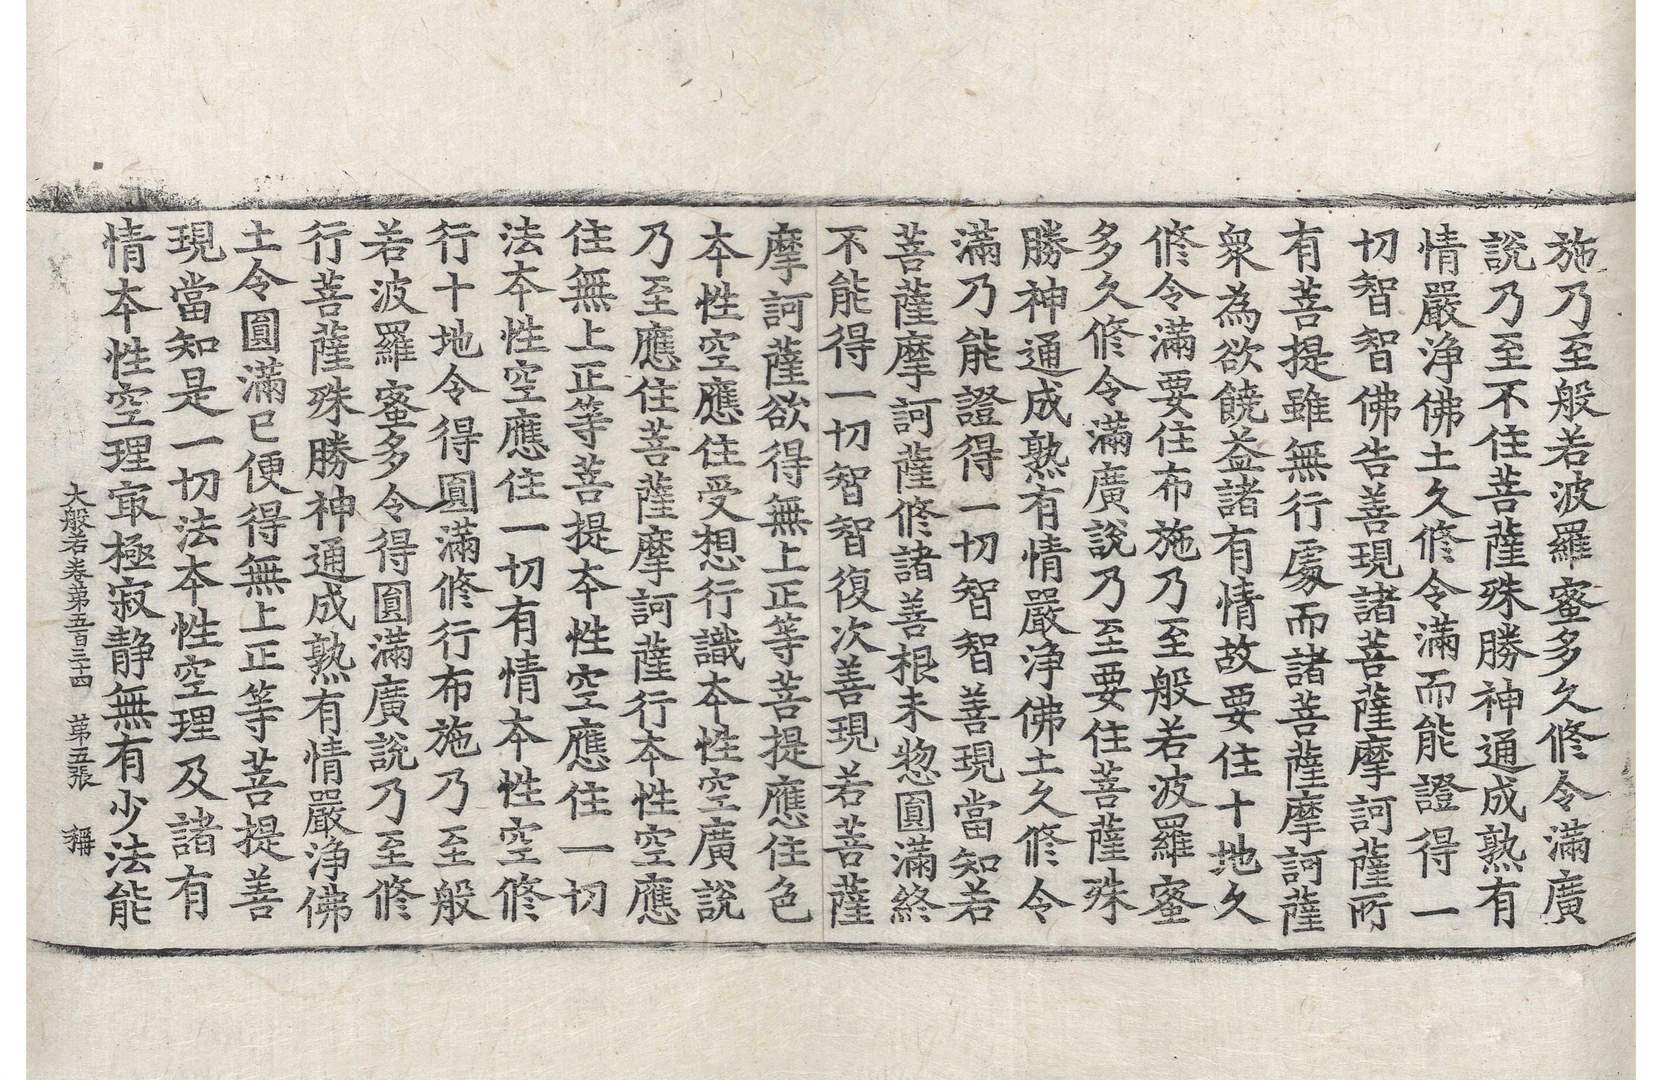 施乃至般若波羅蜜多久修令滿廣
說乃至不住菩薩殊勝神通成熟有
情嚴淨佛土久修令滿而能證得一
切智智佛告善現諸菩薩摩訶薩所
有菩提雖無行處而諸菩薩摩訶薩
衆為欲饒益諸有情故要住十地久
修令滿要住布施乃至般若波羅蜜
多久修令滿廣說乃至要住菩薩殊
勝神通成熟有情嚴淨佛土久修令
滿乃能證得一切智智善現當知若
菩薩摩訶薩修諸善根未惣圓滿終
不能得一切智智復次善現若菩薩
摩訶薩欲得無上正等菩提應住色
本性空應住受想行識本性空廣說
乃至應住菩薩摩訶薩行本性空應
住無上正等菩提本性空應住一切
法本性空應住一切有情本性空修
行十地令得圓滿修行布施乃至般
若波羅蜜多令得圓滿廣說乃至修
行菩薩殊勝神通成熟有情嚴淨佛
土令圓滿已便得無上正等菩提善
現當知是一切法本性空理及諸有
情本性空理㝡極寂靜無有少法能
大般若卷第五百三十四　第五張　稱